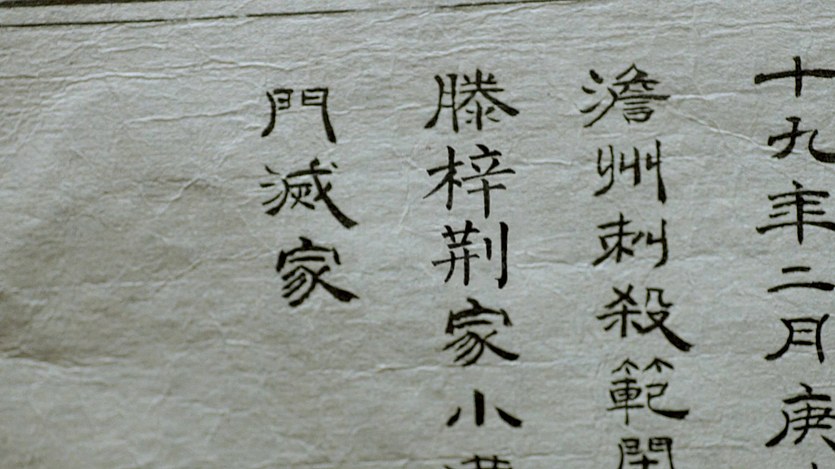 十九年二月庚
澹州刺殺範閑
滕梓荆家小滿
門滅家